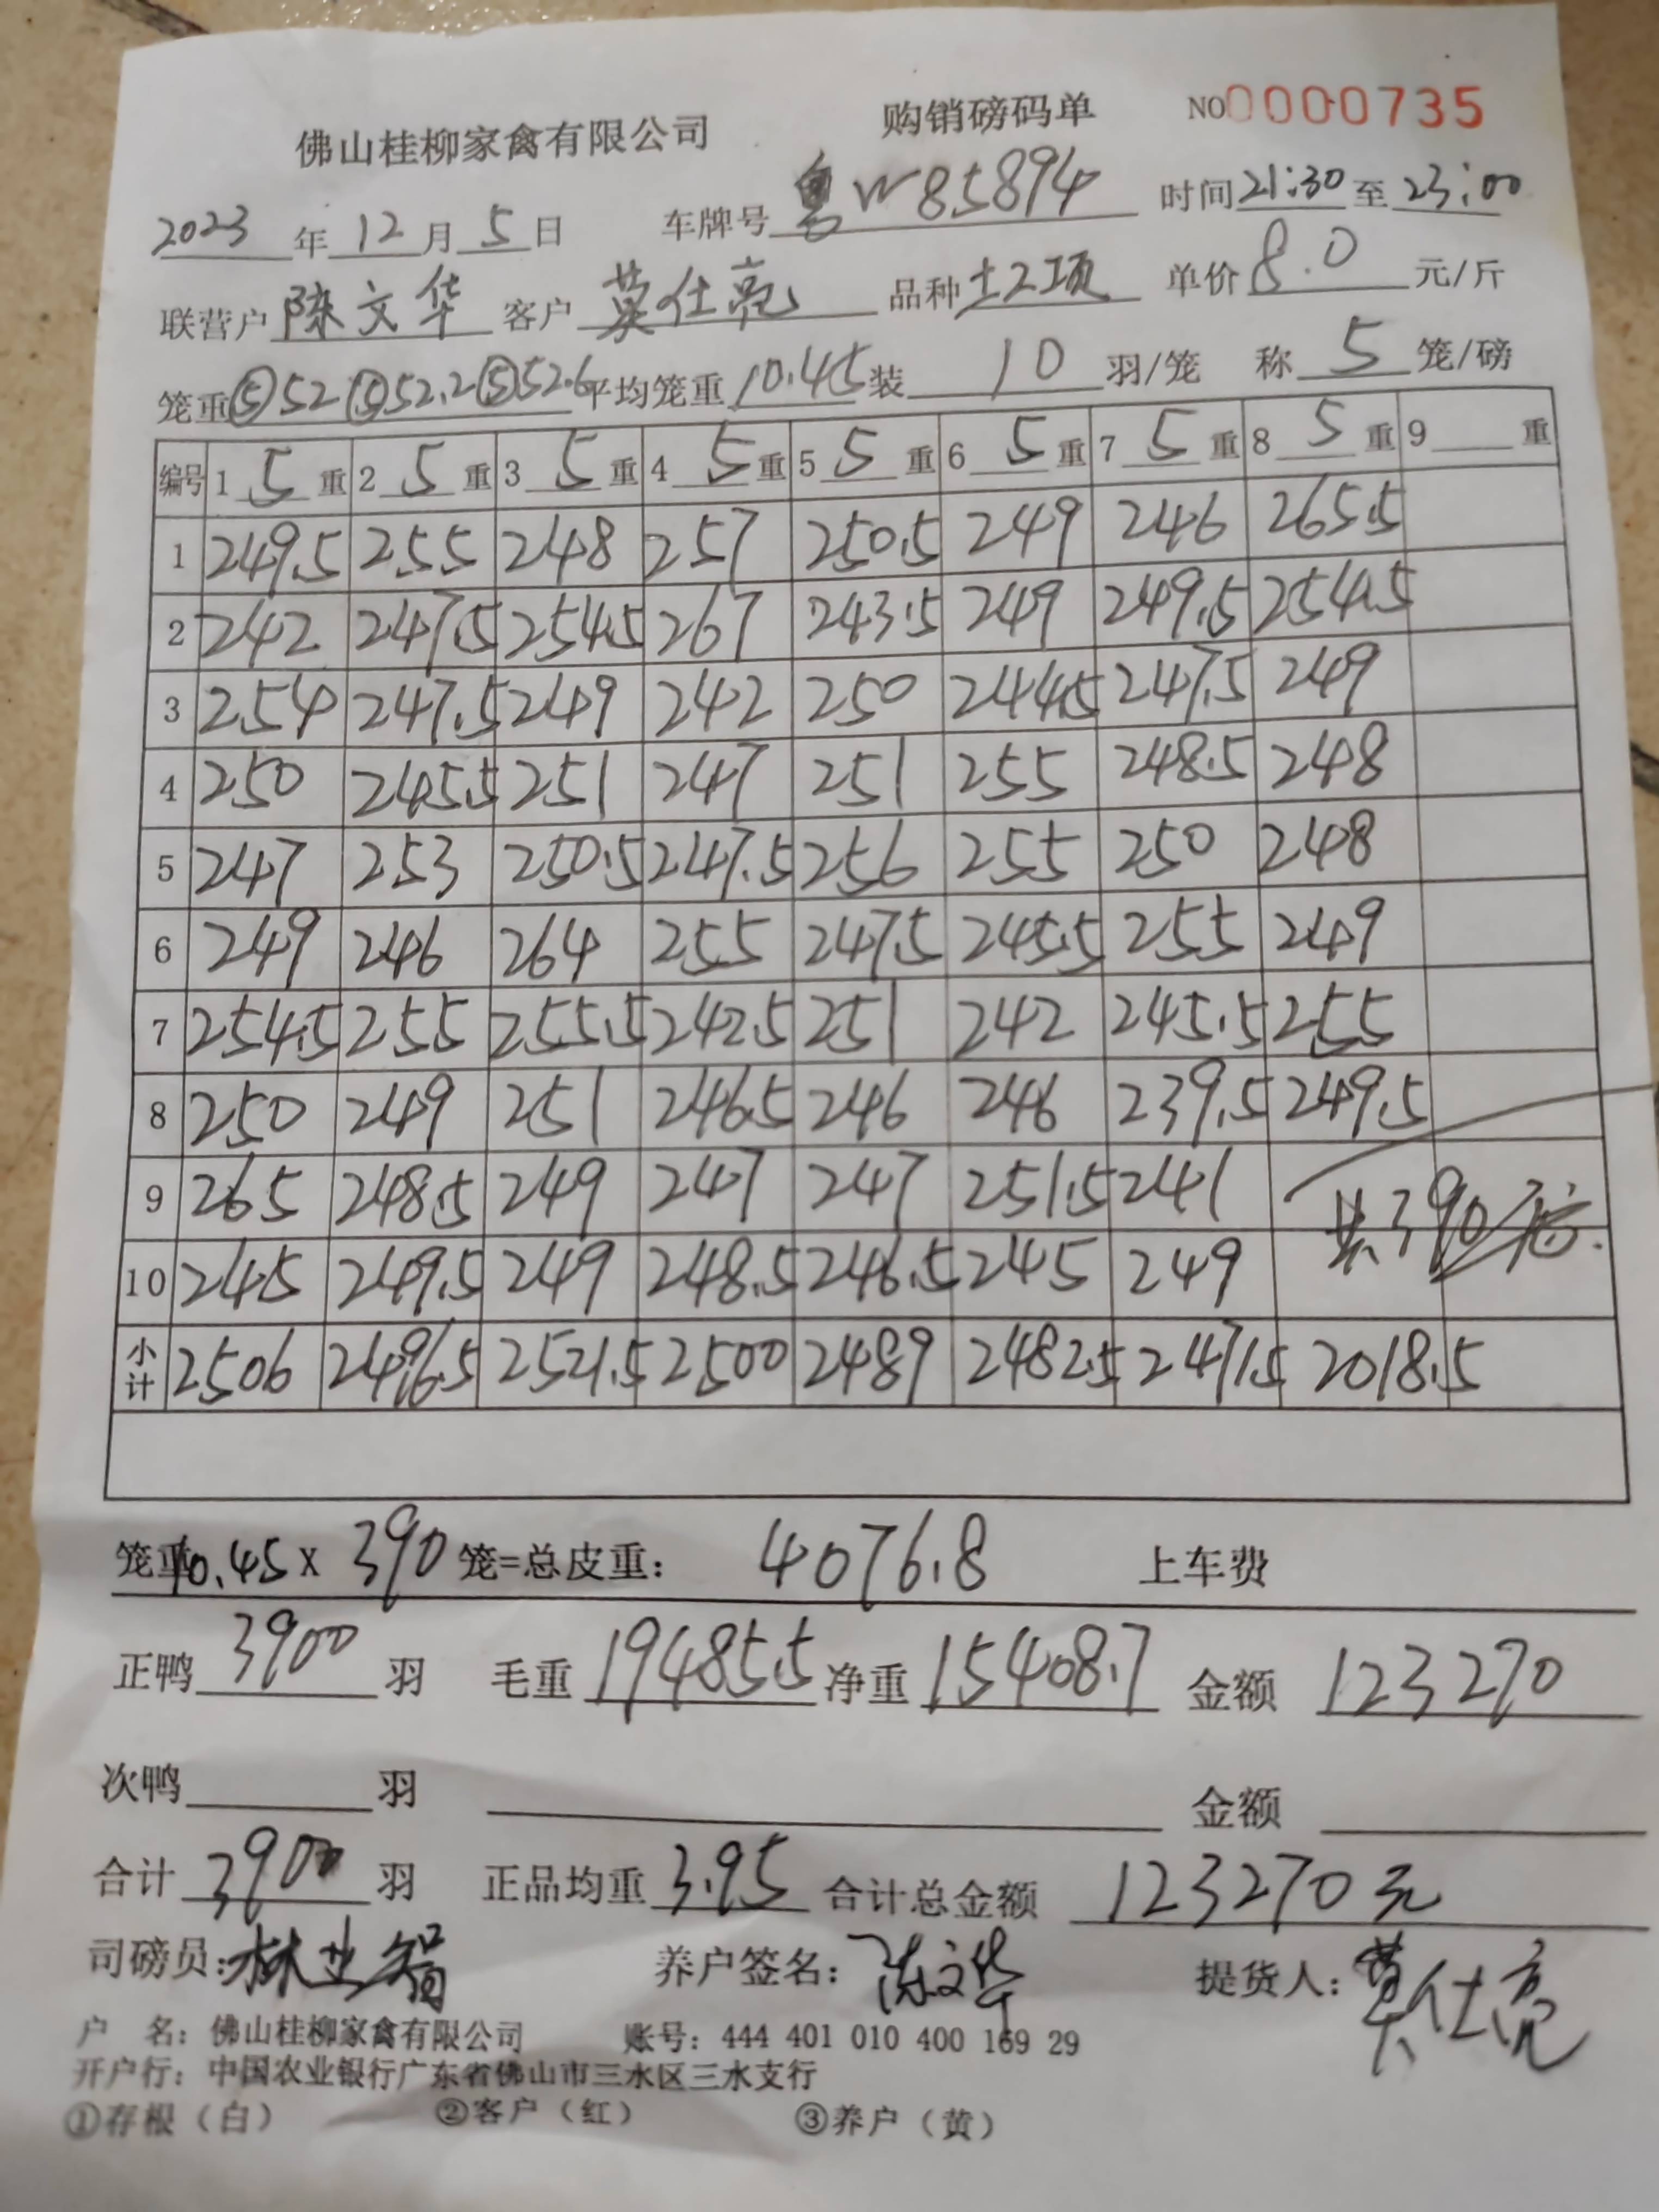 佛山桂柳家禽有限公司 购销磅码单 NO0000735
2023 年 12 月 5 日 车牌号 粤W85894 时间 21:30 至 23:00
联营户 陈文华 客户 莫仕亮 品种 土2项 单价 8.0 元/斤
笼重 ⑤52 ⑤52.2 ⑤52.6 平均笼重 10.45 装 10 羽/笼 称 5 笼/磅
编号 1 5 重 2 5 重 3 5 重 4 5 重 5 5 重 6 5 重 7 5 重 8 5 重 9 重
1 249.5 255 248 257 250.5 249 246 265.5
2 242 247.5 254.5 267 243.5 249 249.5 254.5
3 254 247.5 249 242 250 244.5 247.5 249
4 250 245.5 251 247 251 255 248.5 248
5 247 253 250.5 247.5 256 255 250 248
6 249 246 264 255 247.5 245.5 255 249
7 254.5 255 255.5 242.5 251 242 245.5 255
8 250 249 251 246.5 246 246 239.5 249.5
9 265 248.5 249 247 247 251.5 241 共390
10 245 249.5 249 248.5 246.5 245 249
小计 2506 2496.5 2521.5 2500 2489 2482.5 2471.5 2018.5
笼重 10.45 x 390 笼=总皮重: 4076.8 上车费
正鸭 3900 羽 毛重 19485.5 净重 15408.7 金额 123270
次鸭 羽 金额
合计 3900 羽 正品均重 3.95 合计总金额 123270元
司磅员: 林业智 养户签名: 陈文华 提货人: 莫仕亮
户 名: 佛山桂柳家禽有限公司 账号: 444 401 010 400 169 29
开户行: 中国农业银行广东省佛山市三水区三水支行
①存根（白） ②客户（红） ③养户（黄）